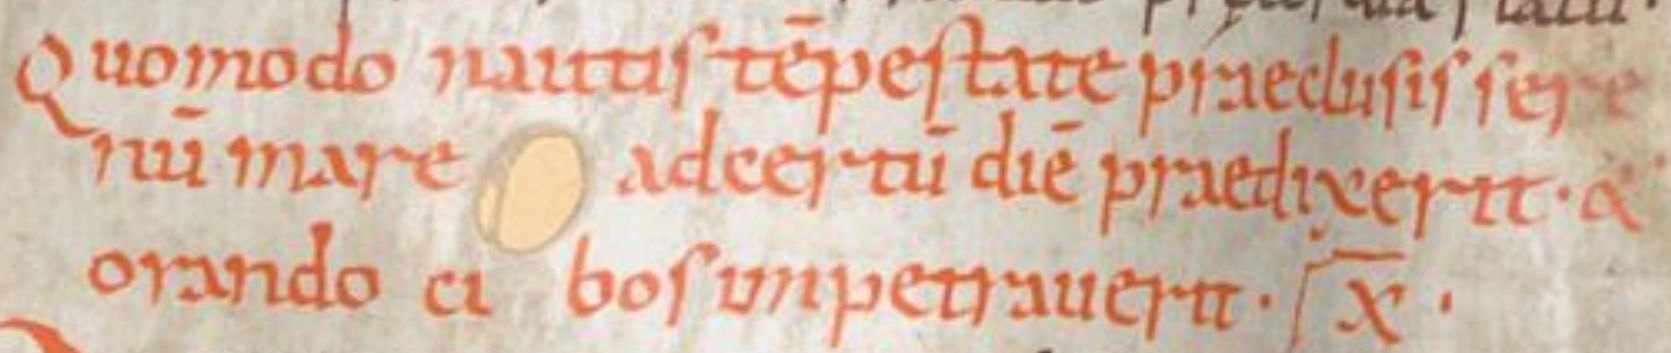 Quomodo nautis tēpestate praeclusis sere
nū mare adcertū diē praedixerit · &
orando ci bos impetrauerit · x ·